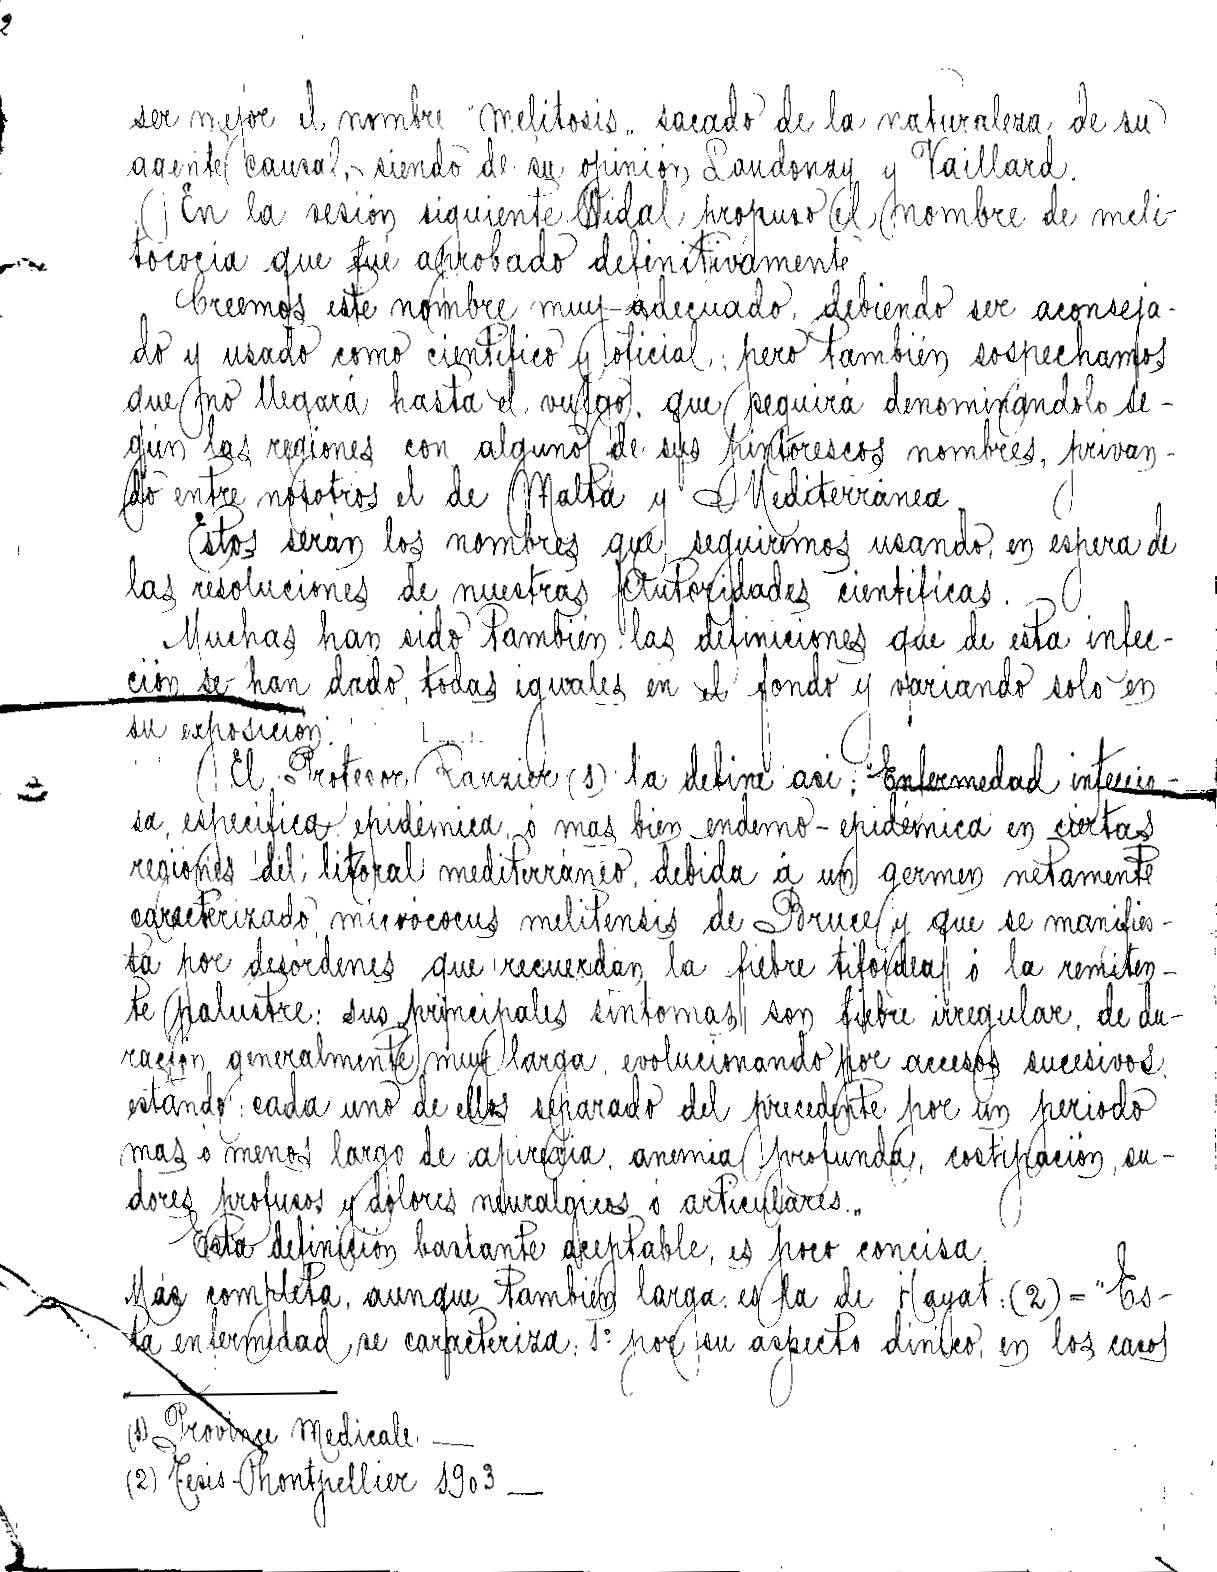 2
ser mejor el nombre "melitosis" sacado de la naturaleza de su
agente causal, siendo de su opinión Landouzy y Vaillard.
En la sesión siguiente Widal propuso el nombre de meli-
tococia que fué aprobado definitivamente
Creemos este nombre muy adecuado, debiendo ser aconseja-
do y usado como científico y oficial; pero también sospechamos
que no llegará hasta el vulgo, que seguirá denominándolo se-
gún las regiones con alguno de sus pintorescos nombres, privan-
do entre nosotros el de Malta y Mediterránea.
Estos serán los nombres que seguiremos usando, en espera de
las resoluciones de nuestras Autoridades científicas.
Muchas han sido también las definiciones que de esta infec-
ción se han dado, todas iguales en el fondo y variando solo en
su exposición.
El Profesor Rauzier (1) la define asi: "Enfermedad infeccio-
sa, especifica epidémica, ó mas bien endemo-epidémica en ciertas
regiones del litoral mediterráneo, debida á un germen netamente
caracterizado, micrócocus melitensis de Bruce y que se manifies-
ta por desórdenes que recuerdan la fiebre tifoidea ó la remiten-
te palustre: sus principales síntomas son fiebre irregular, de du-
racion generalmente muy larga, evolucionando por accesos sucesivos,
estando cada uno de ellos separado del precedente por un periodo
mas ó menos largo de apirexia, anemia profunda, costipación, su-
dores profusos y dolores neuralgicos ó articulares."
Esta definición bastante aceptable, es poco concisa.
Más completa, aunque también larga, es la de Hayat: (2) = "Es-
ta enfermedad se caracteriza: 1º por su aspecto clínico, en los casos
(1) Province Medicale. —
(2) Tesis Montpellier 1903 —